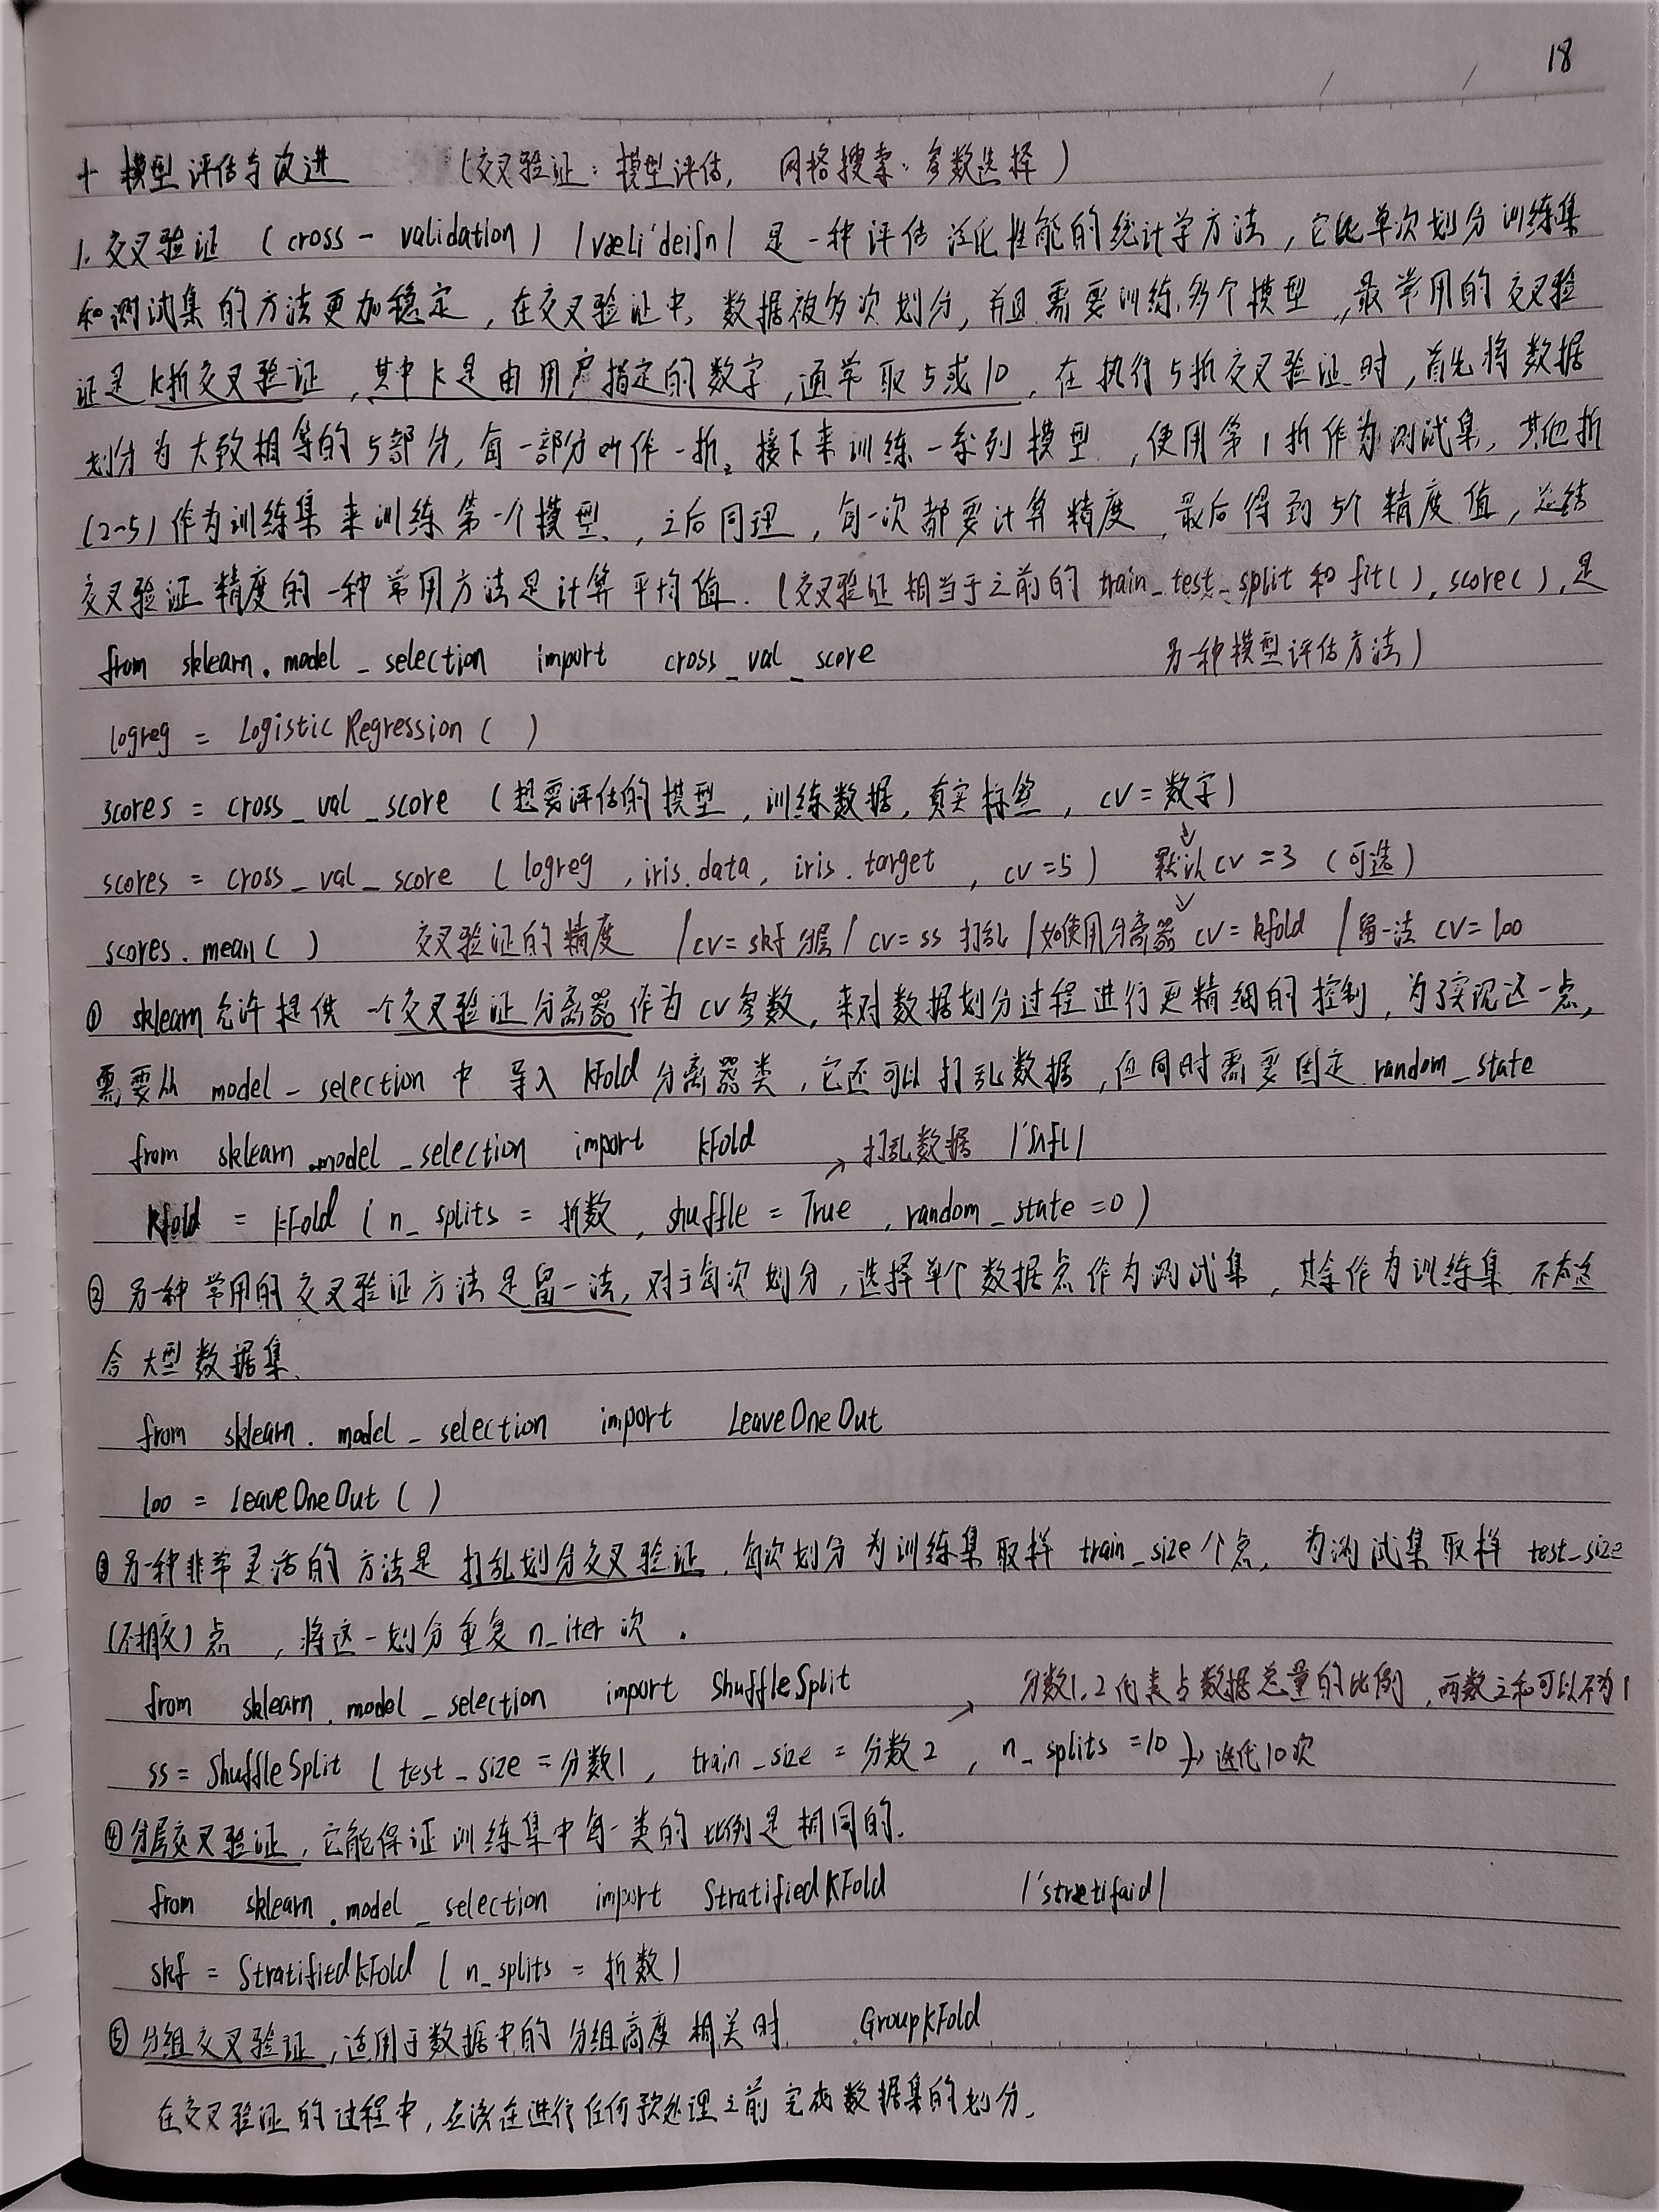 18
十 模型评估与改进 （交叉验证：模型评估， 网格搜索：参数选择）
1. 交叉验证 （cross - validation） /væli'deiʃn/ 是一种评估泛化性能的统计学方法，它比单次划分训练集
和测试集的方法更加稳定，在交叉验证中，数据被多次划分，并且需要训练多个模型，最常用的交叉验
证是k折交叉验证，其中k是由用户指定的数字，通常取5或10，在执行5折交叉验证时，首先将数据
划分为大致相等的5部分，每一部分叫作一折。接下来训练一系列模型，使用第1折作为测试集，其他折
（2~5）作为训练集来训练第一个模型、，之后同理，每一次都要计算精度，最后得到5个精度值，总结
交叉验证精度的一种常用方法是计算平均值．（交叉验证相当于之前的 train_test_split 和 fit( ), score( ), 是
from sklearn.model_selection import cross_val_score 另一种模型评估方法）
logreg = LogisticRegression ( )
scores = cross_val_score （想要评估的模型，训练数据，真实标签，cv = 数字）
scores = cross_val_score ( logreg , iris.data, iris.target , cv =5 ) 默认 cv =3 （可选）
scores.mean( ) 交叉验证的精度 / cv = skf 分层 / cv = ss 打乱 / 如使用分离器 cv = kfold / 留一法 cv = loo
① sklearn允许提供一个交叉验证分离器作为cv参数，来对数据划分过程进行更精细的控制，为了实现这一点，
需要从 model_selection 中 导入 KFold 分离器类，它还可以打乱数据，但同时需要固定 random_state
from sklearn.model_selection import KFold → 打乱数据 /'ʃʌfl/
kfold = KFold ( n_splits = 折数 , shuffle = True , random_state =0 )
② 另一种常用的交叉验证方法是留一法，对于每次划分，选择单个数据点作为测试集，其余作为训练集 不太适
合大型数据集．
from sklearn.model_selection import LeaveOneOut
loo = LeaveOneOut ( )
③ 另一种非常灵活的方法是 打乱划分交叉验证．每次划分为训练集取样 train_size 个点，为测试集取样 test_size
（不相交）点 ，将这一划分重复 n_iter 次．
from sklearn.model_selection import ShuffleSplit → 分数1，2代表占数据总量的比例，两数之和可以不为1
ss = ShuffleSplit ( test_size = 分数1 , train_size = 分数2 , n_splits =10 ) → 迭代10次
④ 分层交叉验证，它能保证训练集中每一类的比例是相同的．
from sklearn.model_selection import StratifiedKFold /'strætifaid/
skf = StratifiedKFold ( n_splits = 折数 )
⑤ 分组交叉验证，适用于数据中的分组高度相关时 GroupKFold
在交叉验证的过程中，应该在进行任何预处理之前完成数据集的划分．